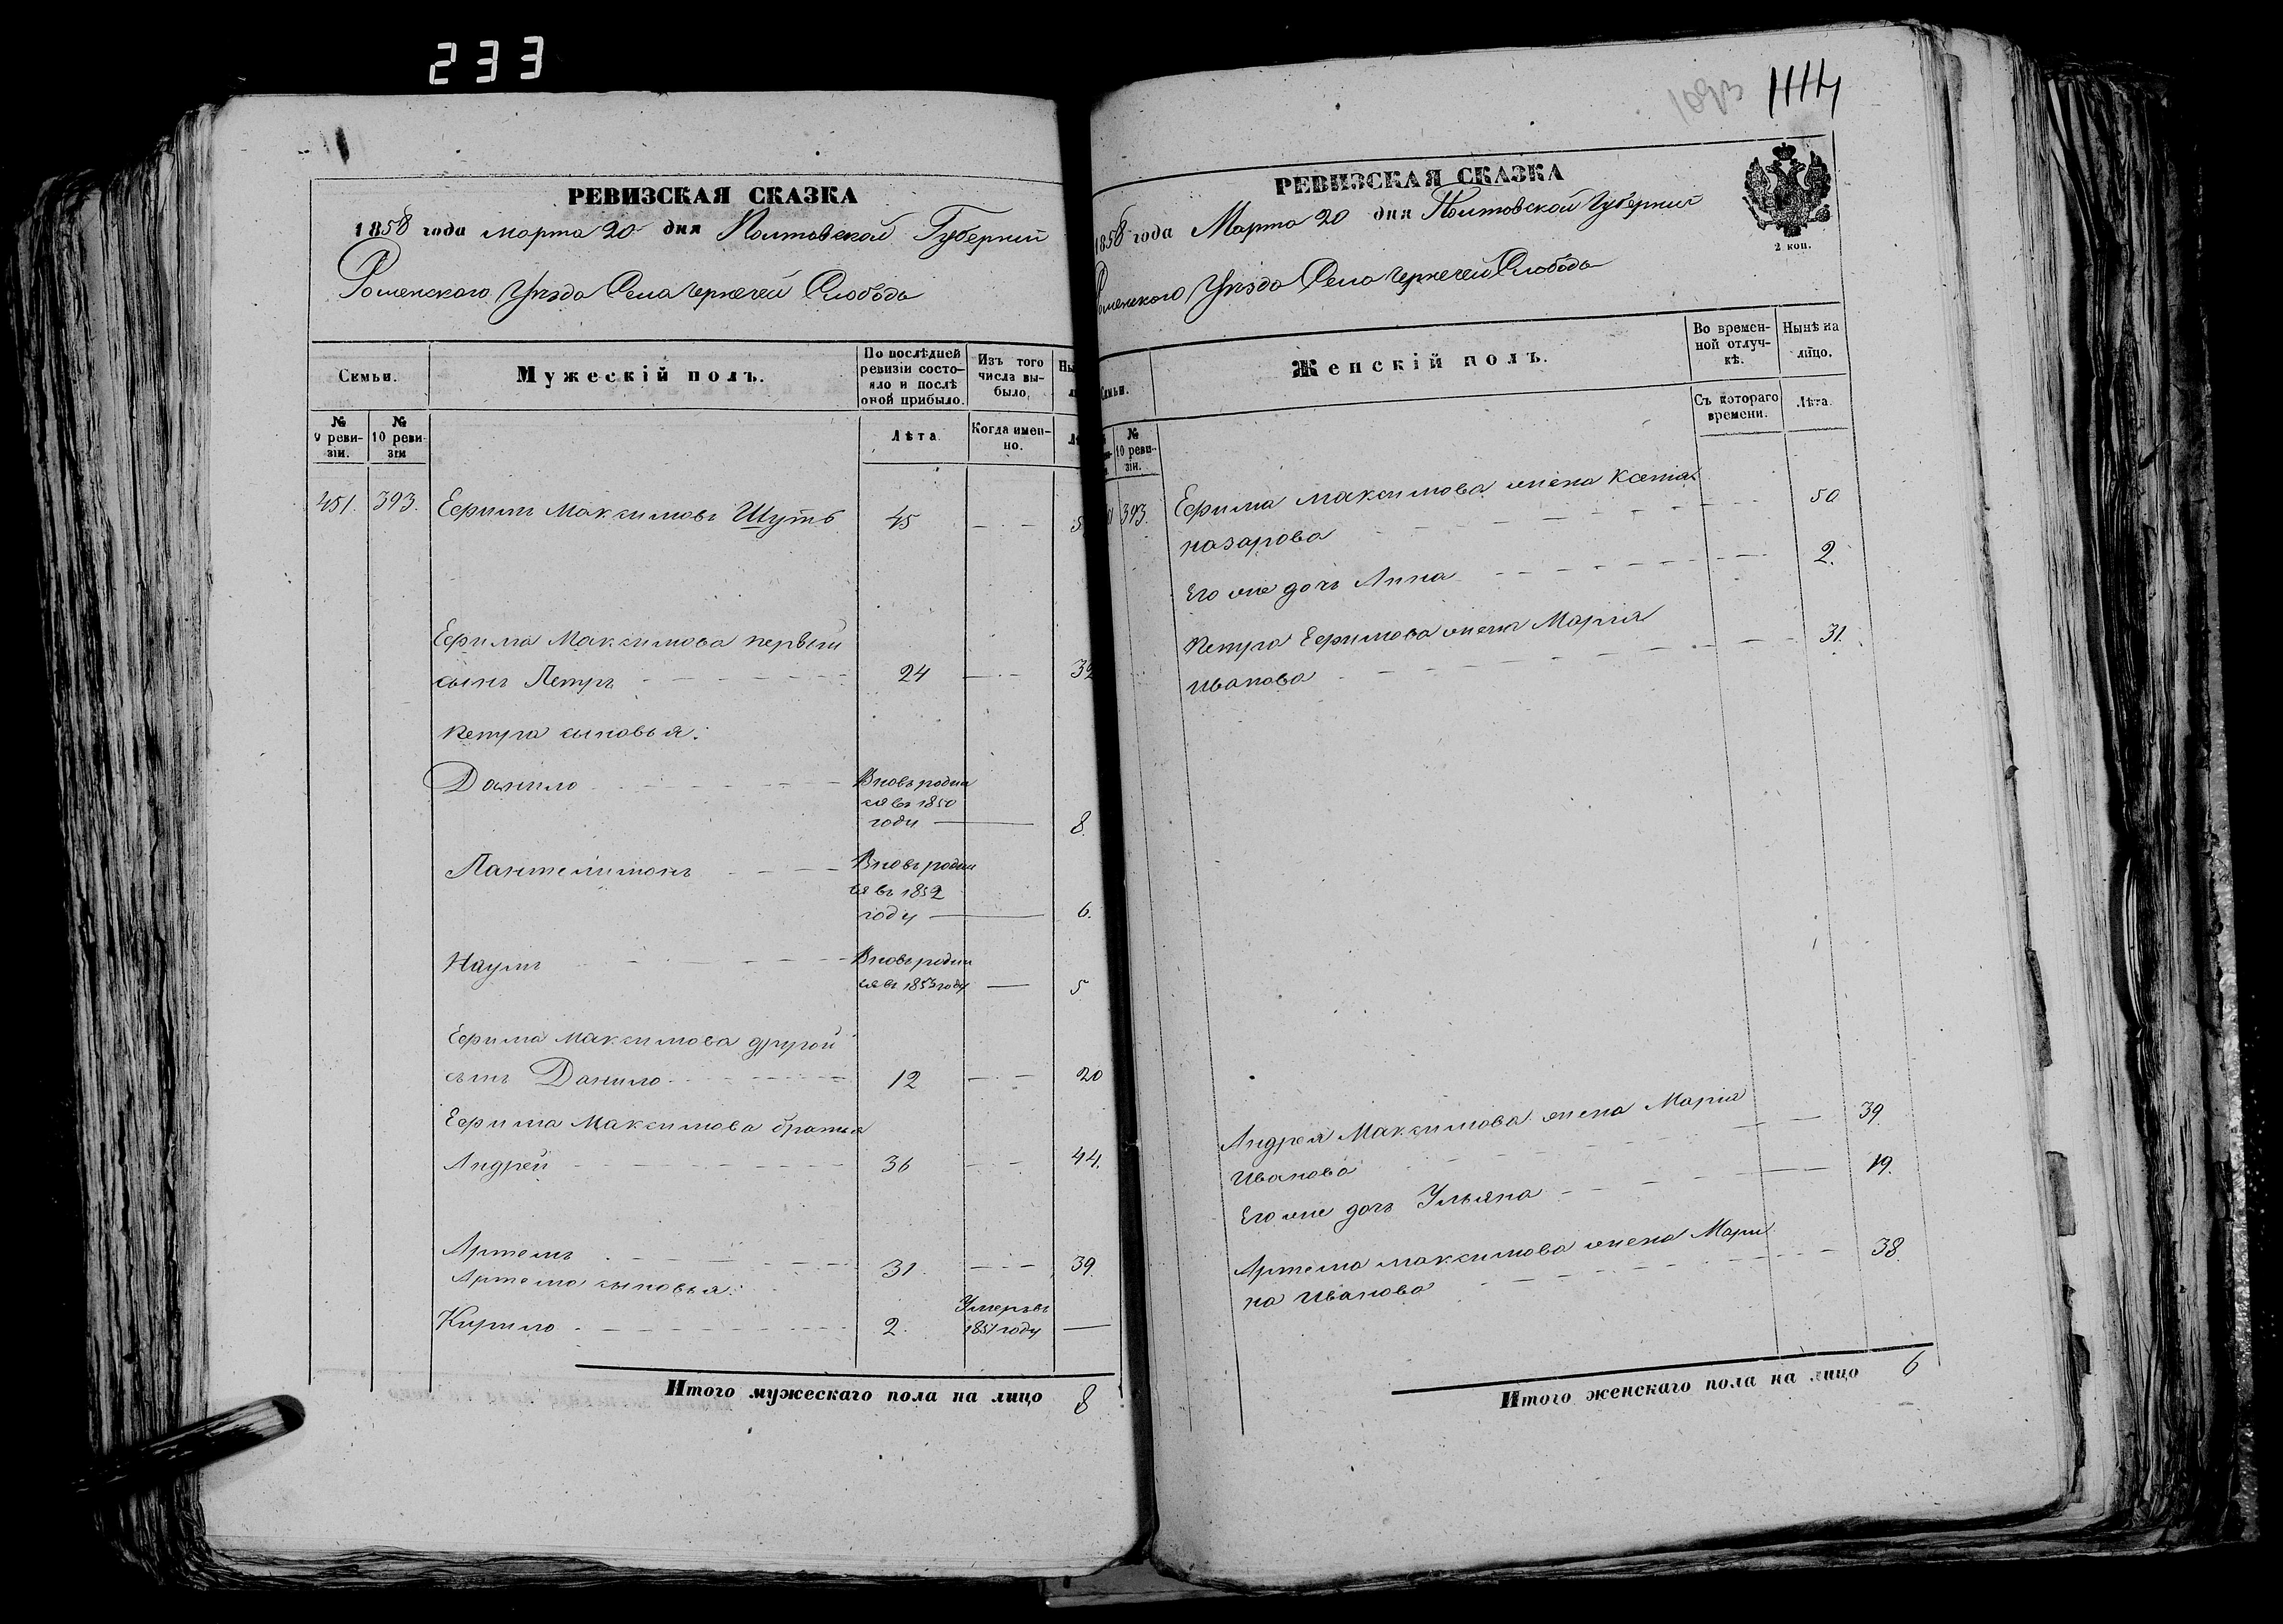 233
РЕВИЗСКАЯ СКАЗКА
1858 года марта 20 дня Полтавской Губернии
Роменского Уезда Села Чернечей Слободы
Семьи.
Мужескій полъ.
По послѣдней ревизіи состо-
яло и послѣ оной прибыло.
Изъ того числа вы-
было.
№ 9 реви-
зіи.
№ 10 реви-
зіи
Лѣта.
Когда имен-
но.
451. 393. Ефимъ Максимовъ Шутъ 45
Ефима Максимова первый
сынъ Петръ 24
Петра сыновья:
Данило Вновь родил
ся въ 1850
году 8.
Пантелимонъ Вновь родил
ся въ 1852
году 6.
Наумъ Вновь родил
ся въ 1853 году 5
Ефима Максимова другой
сынъ Данило 12 20
Ефима Максимова братья
Андрей 36 44.
Артемъ 31 39.
Артема сыновья:
Кирило 2. Умеръ въ
1851 году
Итого мужескаго пола на лицо 8
1114
РЕВИЗСКАЯ СКАЗКА
1858 года Марта 20 дня Полтавской Губернии
2 коп.
Роменского Уезда Села Чернечей Слободы
Семьи.
Женскій полъ.
Во времен-
ной отлуч-
кѣ.
Нынѣ на
лицо.
Съ котораго
времени.
Лѣта.
№
10 реви-
зіи.
393. Ефима Максимова жена Ксенія
Назарова 50
Его же дочь Анна 2.
Петра Ефимова жена Марія
Иванова 31.
Андрея Максимова жена Марія
Иванова 39.
Его же дочь Ульяна 19.
Артема Максимова жена Мари
на Иванова 38.
Итого женскаго пола на лицо 6